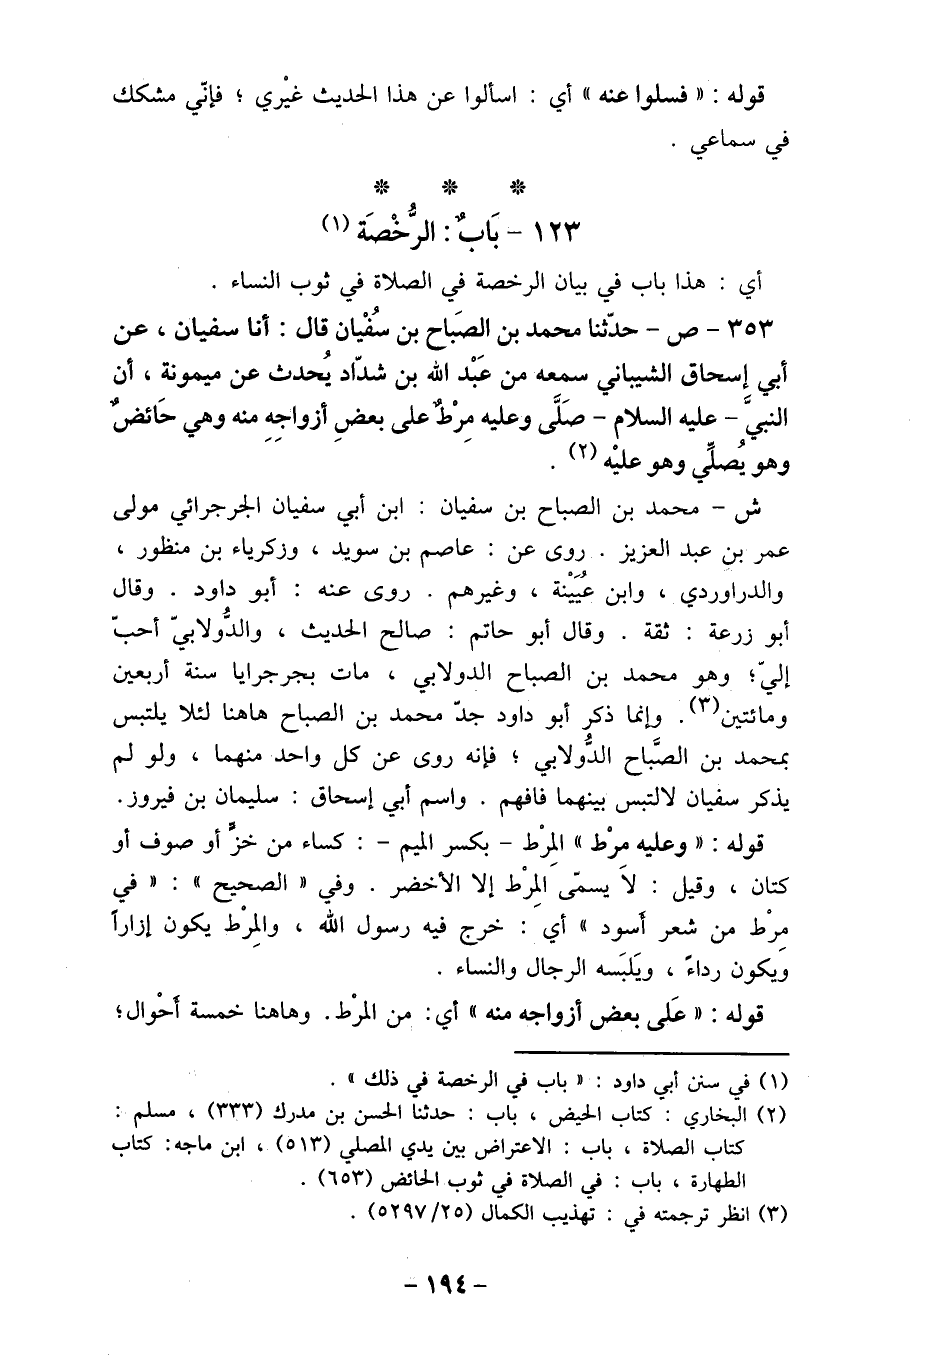 قوله : « فسلوا عنه » أي : اسألوا عن هذا الحديث غيْري ؛ فإنّي مشكك
في سماعي .
* * *
١٢٣ - بَابٌ : الرُّخْصَة (١)
أي : هذا باب في بيان الرخصة في الصلاة في ثوب النساء .
٣٥٣ - ص - حدّثنا محمد بن الصَباح بن سُفْيان قال : أنا سفيان ، عن
أبي إسحاق الشيباني سمعه من عَبْد الله بن شدّاد يُحدث عن ميمونة ، أن
النبيَّ - عليه السلام - صَلَّى وعليه مِرْطٌ على بعضِ أزواجِهِ منه وهي حَائضٌ
وهو يُصلِّي وهو عليْه (٢) .
ش - محمد بن الصباح بن سفيان : ابن أبي سفيان الجرجرائي مولى
عمر بن عبد العزيز . روى عن : عاصم بن سويد ، وزكرياء بن منظور ،
والدراوردي ، وابن عُيَيْنة ، وغيرهم . روى عنه : أبو داود . وقال
أبو زرعة : ثقة . وقال أبو حاتم : صالح الحديث ، والدُّولابيّ أحبّ
إليّ؛ وهو محمد بن الصباح الدولابي ، مات بجرجرايا سنة أربعين
ومائتين(٣). وإنما ذكر أبو داود جدّ محمد بن الصباح هاهنا لئلا يلتبس
بمحمد بن الصَّباح الدُّولابي ؛ فإنه روى عن كل واحد منهما ، ولو لم
يذكر سفيان لالتبس بينهما فافهم . واسم أبي إسحاق : سليمان بن فيروز.
قوله : « وعليه مرْط » المِرْط - بكسر الميم - : كساء من خزٍّ أو صوف أو
كتان ، وقيل : لا يسمّى المِرْط إلا الأخضر . وفي « الصحيح » : « في
مِرْط من شعر أَسود » أي : خرج فيه رسول الله ، والمِرْط يكون إزاراً
ويكون رداءً ، ويَلبَسه الرجال والنساء .
قوله : « عَلى بعض أزواجه منه » أي: من المرْط. وهاهنا خمسة أَحْوال؛
(١) في سنن أبي داود : « باب في الرخصة في ذلك » .
(٢) البخاري : كتاب الحيض ، باب : حدثنا الحسن بن مدرك (٣٣٣) ، مسلم :
كتاب الصلاة ، باب : الاعتراض بين يدي المصلي (٥١٣) ، ابن ماجه: كتاب
الطهارة ، باب : في الصلاة في ثوب الحائض (٦٥٣) .
(٣) انظر ترجمته في : تهذيب الكمال (٥٢٩٧/٢٥) .
- ١٩٤ -